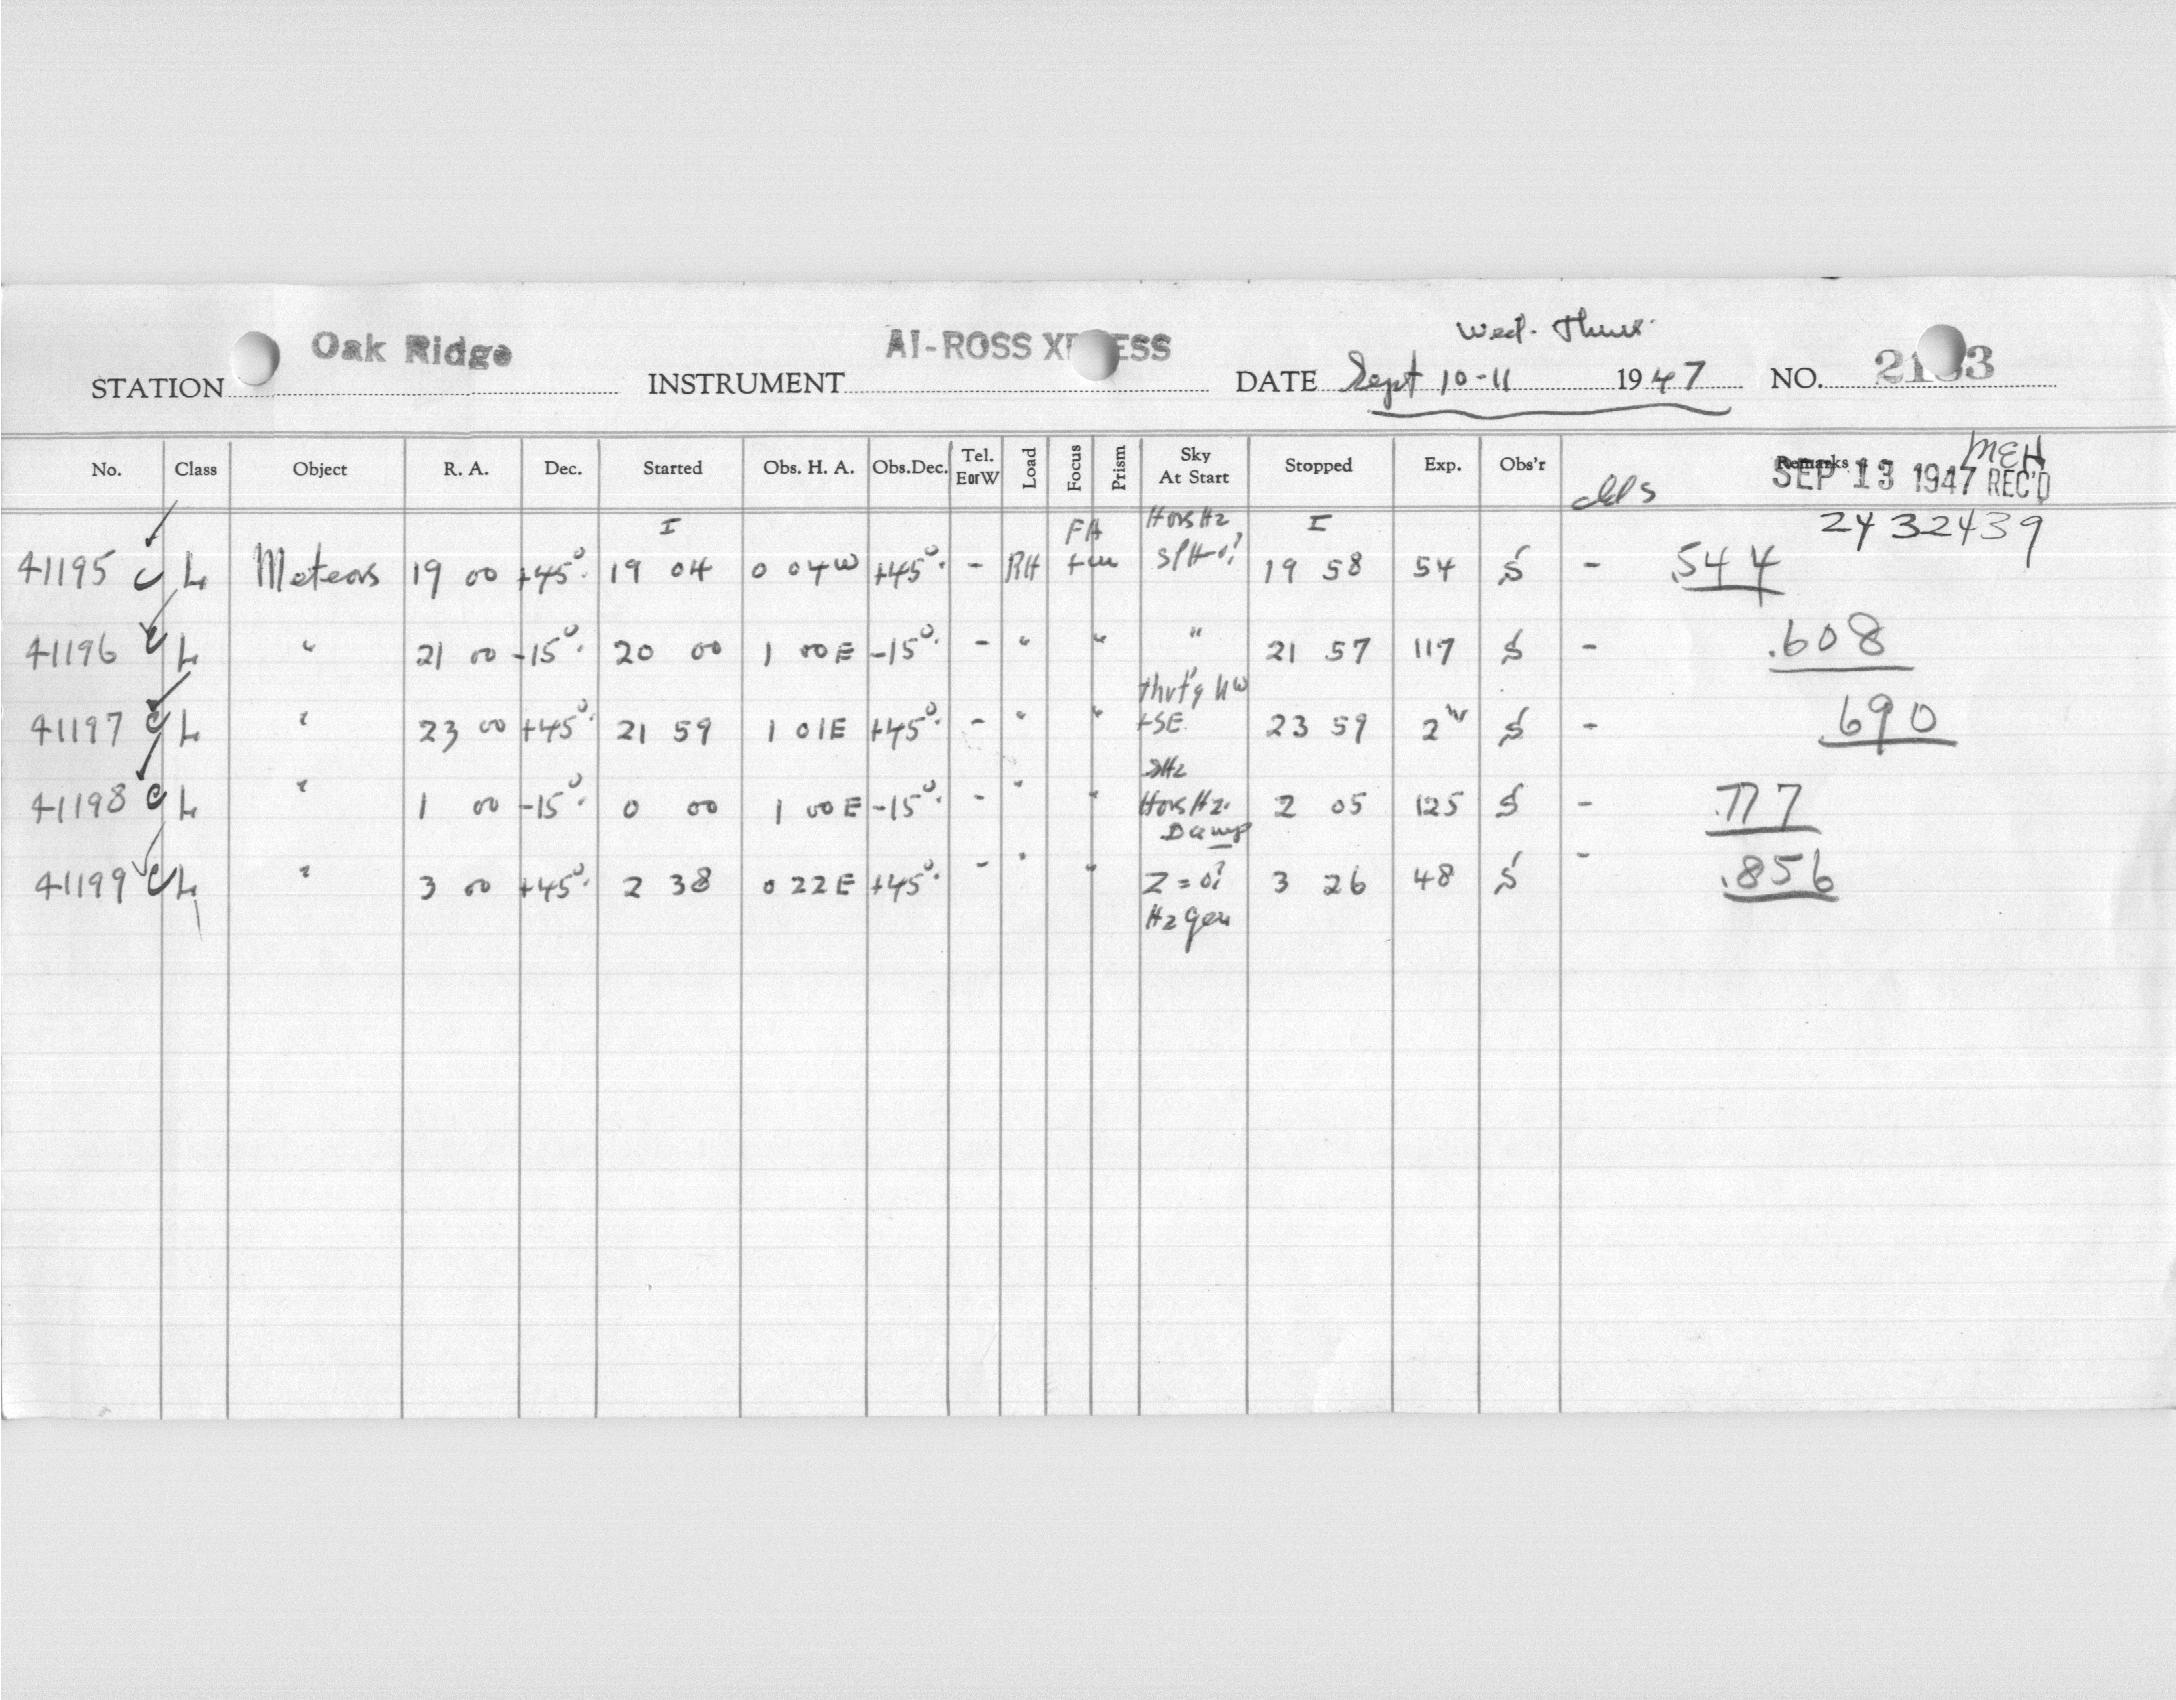 Wed. Thur.
Oak Ridge AI-ROSS XP ESS
STATION INSTRUMENT DATE Sept 10-11 1947 NO. 21 3
MEH
No. Class Object R. A. Dec. Started Obs. H. A. Obs.Dec. Tel. EorW Load Focus Prism Sky At Start Stopped Exp. Obs'r Remarks
SEP 13 1947 REC'D
I FA Hors Hz I 2432439
41195 c L Meteors 19 00 +45°. 19 04 0 04W +45°. - RH 19 58 54 S - .544
41196 c L " 21 00 -15°. 20 00 1 00E -15°. - " " " 21 57 117 S - .608
41197 c L " 23 00 +45°. 21 59 1 01E +45°. - " " +SE. 23 59 2 S - 690
41198 c L " 1 00 -15°. 0 00 1 00E -15°. - " " Hors Hz. 2 05 125 S - .777
Damp
41199 c L " 3 00 +45°. 2 38 0 22E +45°. - " " Z = 0? 3 26 48 S - .856
Hz gen